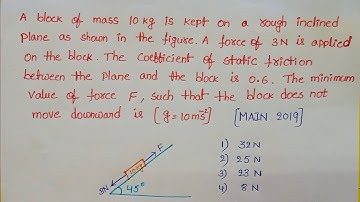 A block of mass 10kg is kept on a rough inclined
plane as shown in the figure. A force of 3N is applied
on the block. The Coefficient of static friction
between the Plane and the block is 0.6. The minimum
value of force F, such that the block does not
move downward is [g=10ms⁻²] [MAIN 2019]
F
10kg
3N
45°
1) 32N
2) 25 N
3) 23 N
4) 8 N